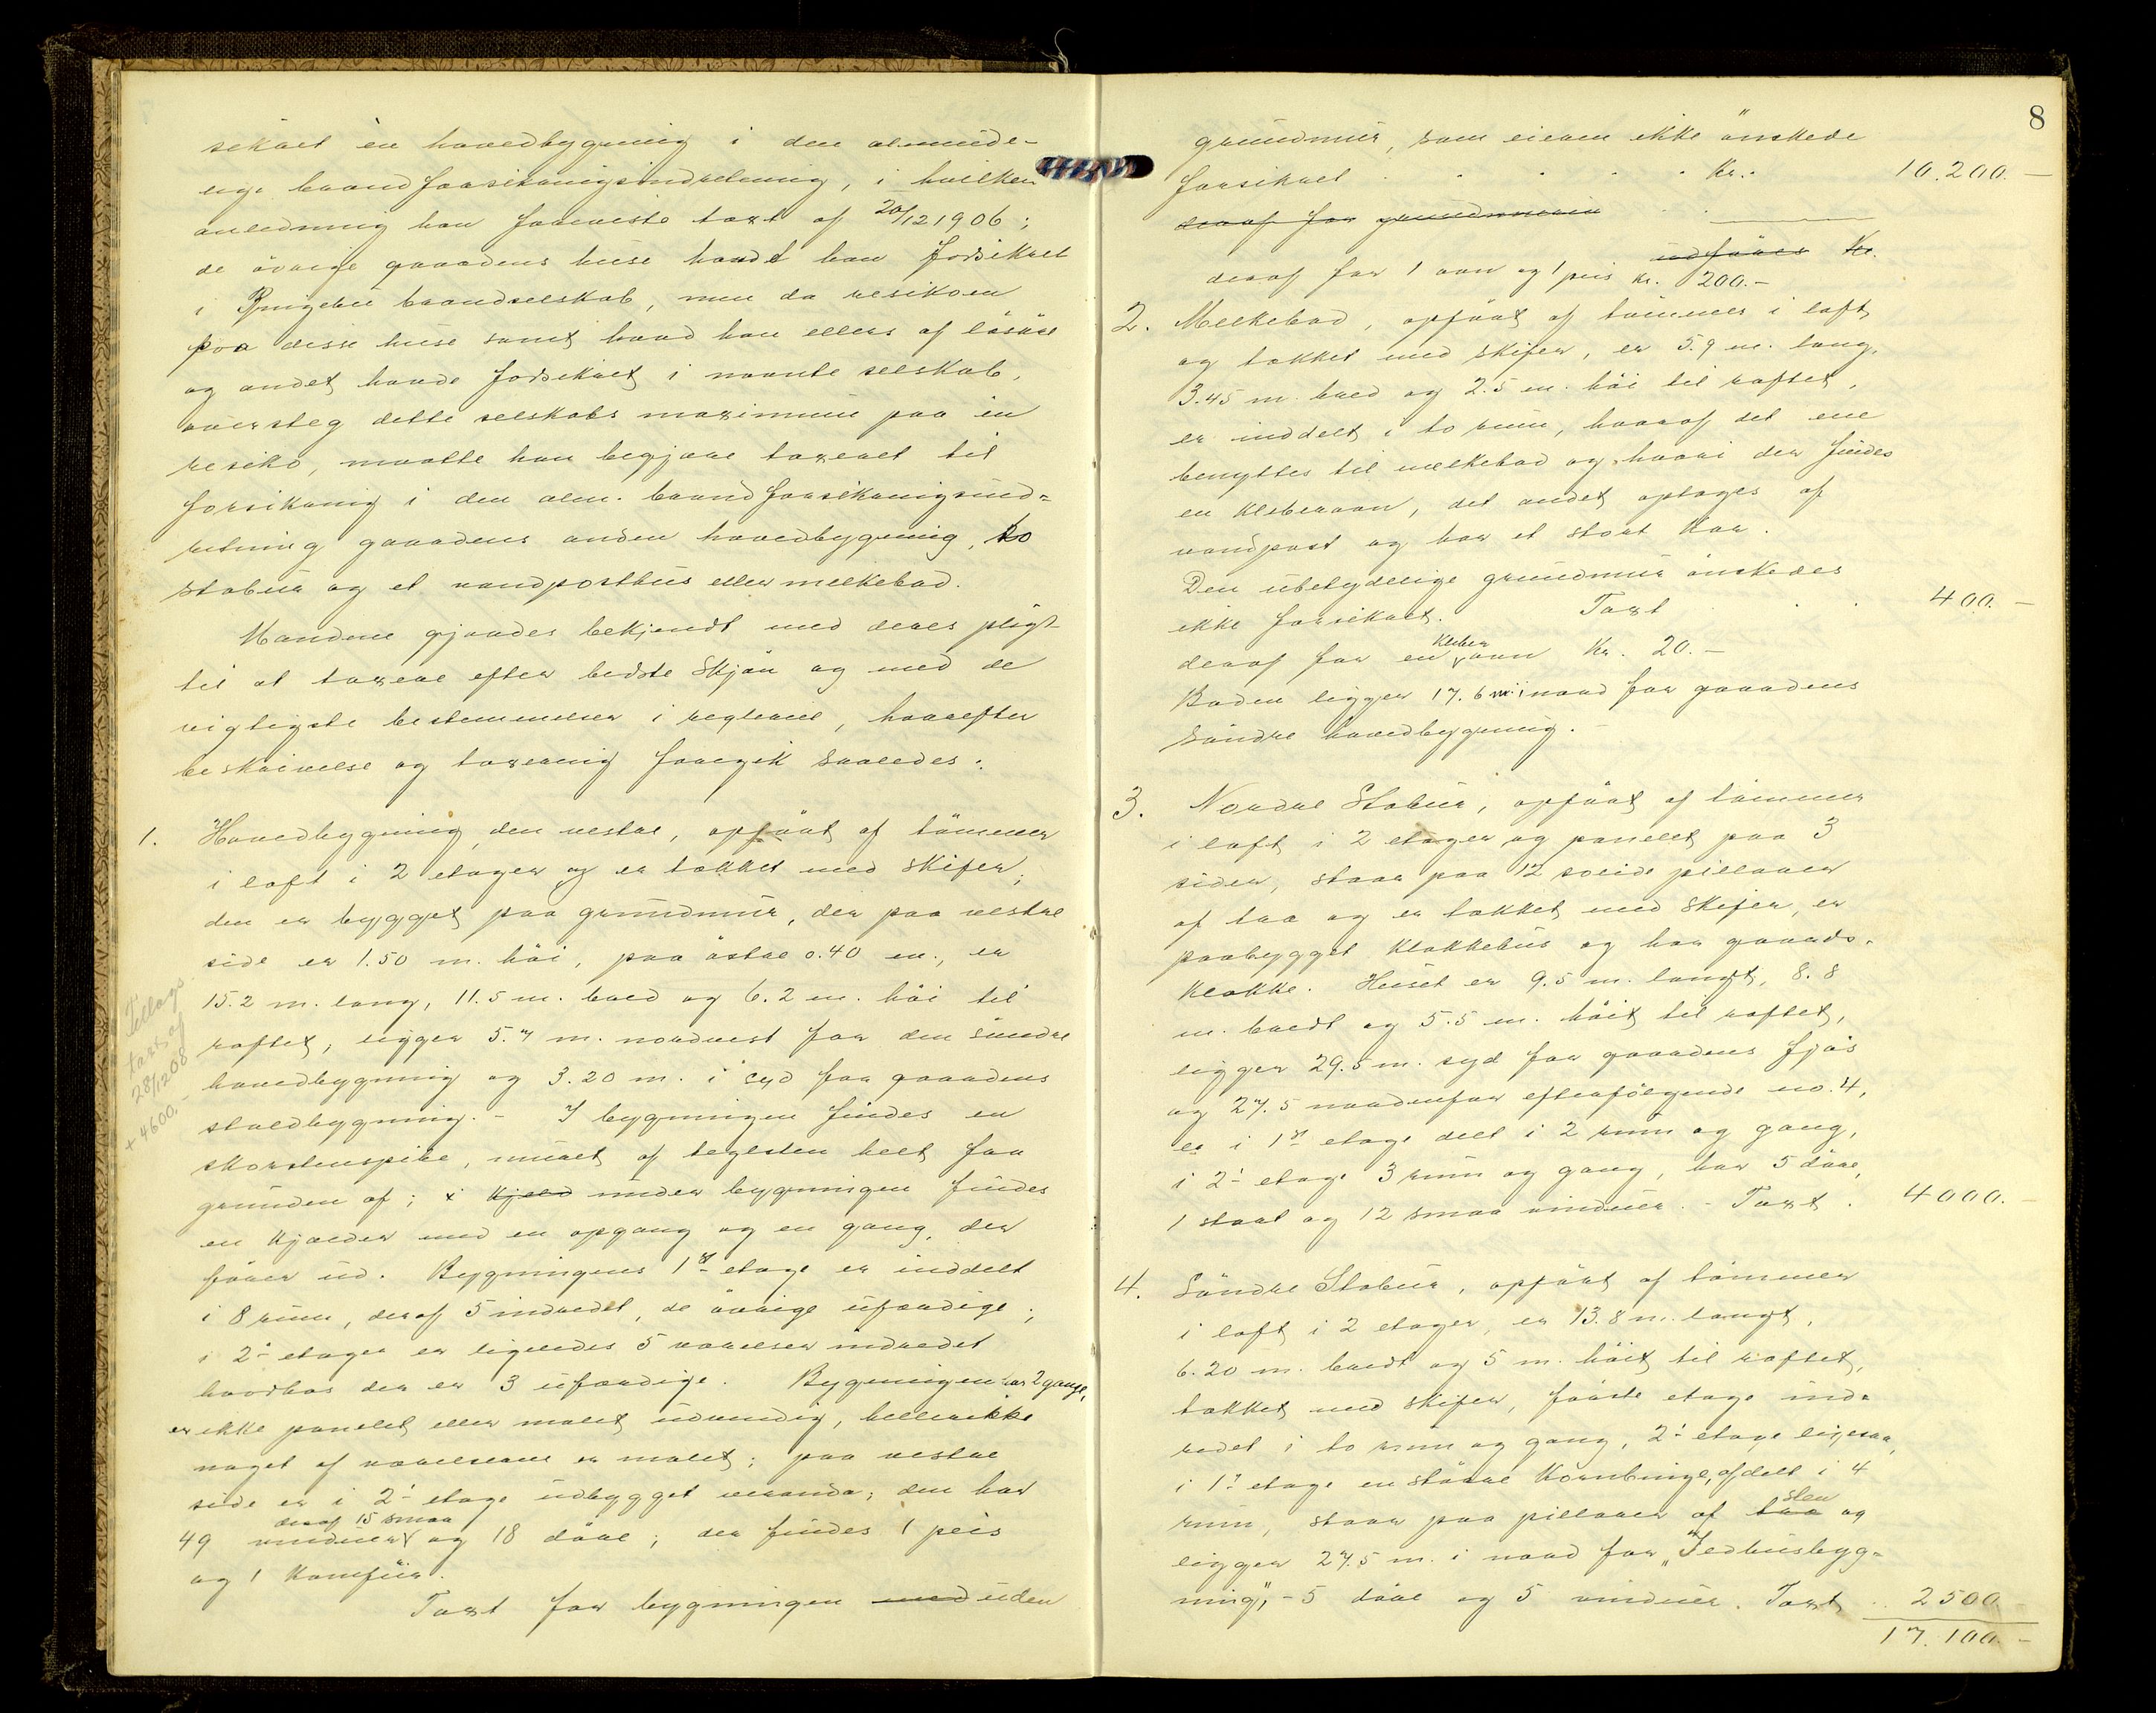 sikret en hovedbygning i den alminde-
lige brandforsikringsindretning, i hvilken
anledning han foreviste taxt af 20/12 1906;
de övrige gaardens huse havde han forsikret
i Ringebu brandselskab, men da resikoen
paa disse huse samt hvad han ellers af lösöre
og andet havde forsikret i nævnte selskab,
oversteg dette selskabs maximum paa én
resiko, maatte han begjære taxeret til
forsikring i den alm. brandforsikringsind-
retning gaardens anden hovedbygning, to
stabur og et vandposthus eller melkebod.
Mændene gjordes bekjendt med deres pligt
til at taxere efter bedste skjön og med de
vigtigste bestemmelser i reglerne, hvorefter
beskrivelse og taxering foregik saaledes:
1. Hovedbygning, den vestre, opfört af tömmer
i laft i 2 etager og er tækket med skifer;
den er bygget paa grundmur, der paa vestre
side er 1.50 m. höi, paa östre 0.40 m., er
15.2 m. lang, 11.5 m. bred og 6.2 m. höi til
raftet, ligger 5.7 m. nordvest for den sundre
hovedbygning og 3.20 m. i syd for gaardens
staldbygning. - I bygningen findes en
skorstenspibe, muret af teglsten helt fra
grunden af; i kjæld under bygningen findes
en kjælder med en opgang og en gang, der
förer ud. Bygningens 1ste etage er inddelt
i 8 rum, deraf 5 indredet, de övrige ufærdige;
i 2. etage er ligeledes 5 værelser indredet
hvorhos der er 3 ufærdige. Bygningen har 2 gange,
er ikke panelet eller malet udvendig, heller ikke
noget af værelserne er malet; paa vestre
side er i 2. etage udbygget veranda; den har
deraf 15 smaa
49 vinduer og 18 döre; der findes 1 peis
og 1 komfür.
Taxt for bygningen med uden
Tillægs
taxt af
28/12 08
+ 4600.-
8
grundmur, som eieren ikke önskede
forsikret . . . . . Kr. 10.200.-
deraf for grundmuren
udföres Kr.
deraf for 1 ovn og 1 peis Kr. 200.-
2. Melkebod, opfört af tömmer i laft
og tækket med skifer, er 5.9 m. lang,
3.45 m. bred og 2.5 m. höi til raftet,
er inddelt i to rum, hvoraf det ene
benyttes til melkebod og hvori der findes
en kleberovn, det andet optages af
vandpost og har et stort kar.
Den ubetydelige grundmur önskedes
ikke forsikret. Taxt . . 400.-
Kleber
deraf for en ovn Kr. 20.-
Boden ligger 17.6 m i nord for gaardens
söndre hovedbygning.
3. Nordre Stabur, opfört af tömmer
i laft i 2 etager og panelet paa 3
sider, staar paa 12 solide pillarer
af træ og er tækket med skifer, er
paabygget klokkehus og har gaards-
klokke. Huset er 9.5 m. langt, 8.8
m. bredt og 5.5 m. höit til raftet,
ligger 29.5 m. syd for gaardens fjös
og 27.5 nordenfor efterfölgende no. 4,
er i 1ste etage delt i 2 rum og gang,
i 2. etage 3 rum og gang, har 5 döre,
1 stort og 12 smaa vinduer. - Taxt . 4000.-
4. Söndre Stabur, opfört af tömmer
i laft i 2 etager, er 13.8 m. langt,
6.20 m. bredt og 5 m. höit til raftet,
tækket med skifer, förste etage ind-
redet i to rum og gang, 2. etage ligesaa,
i 1ste etage en större kornbinge, afdelt i 4
sten
rum, staar paa pillarer af træ og
ligger 27.5 m. i nord for "Ildhusbyg-
ning", - 5 döre og 5 vinduer. Taxt . . 2500
17.100.-